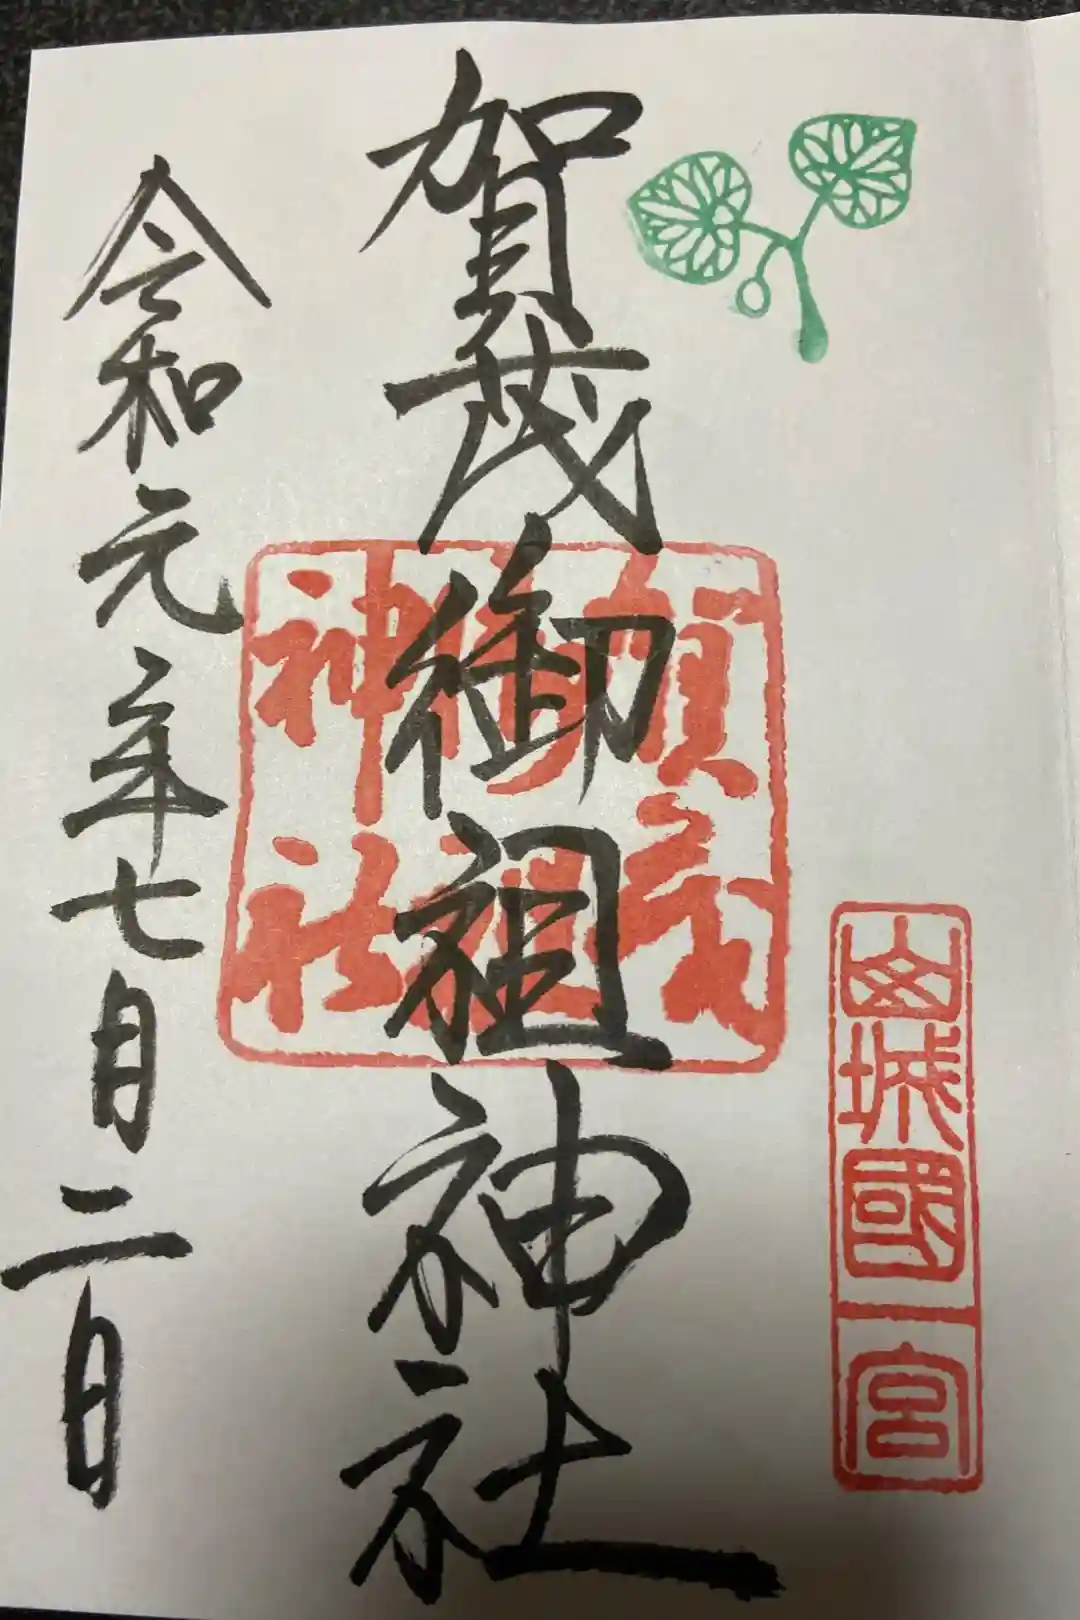 山城國一宮
賀茂御祖神社
賀茂
御祖
神社
令和元年七月二日